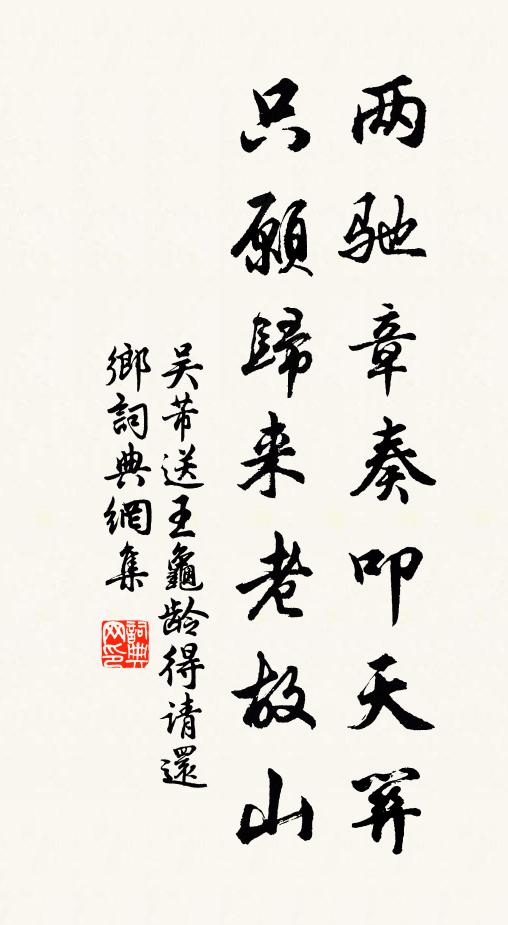 两驰章奏叩天關
只願歸来老故山
吴芾送王龜龄得请還
鄉詞典網集
詞典网印